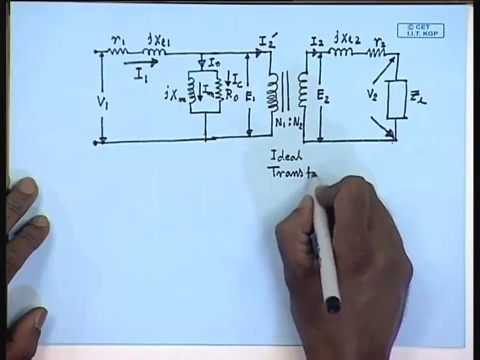 © CET
I.I.T. KGP
r1 jXl1 I0 I2' I2 jXl2 r2
I1
V1 jXm Im Ic R0 E1 E2 V2 ZL
N1 : N2
Ideal
Transfo